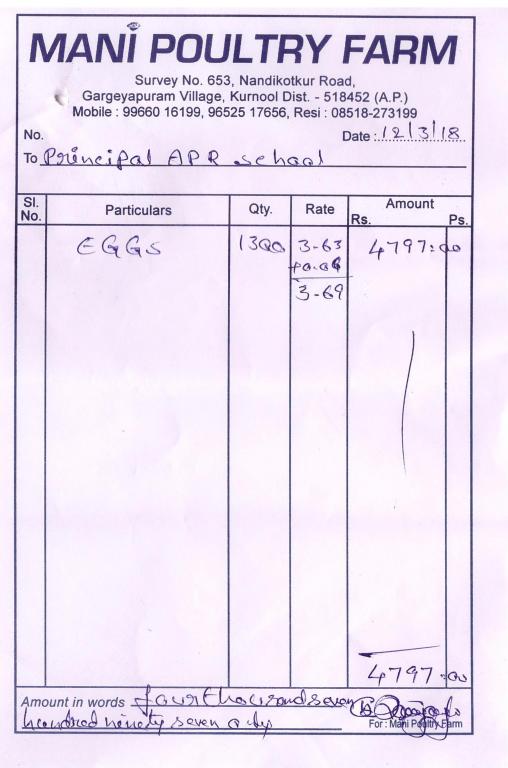 MANI POULTRY FARM
Survey No. 653, Nandikotkur Road,
Gargeyapuram Village, Kurnool Dist. - 518452 (A.P.)
Mobile : 99660 16199, 96525 17656, Resi : 08518-273199
No. Date : 12/3/18
To Principal APR school
Sl. No. Particulars Qty. Rate Amount Rs. Ps.
EGGS 1300 3-63 4797=00
+0.06
3-69
4797=00
Amount in words four thousand seven
hundred ninety seven only
For : Mani Poultry Farm